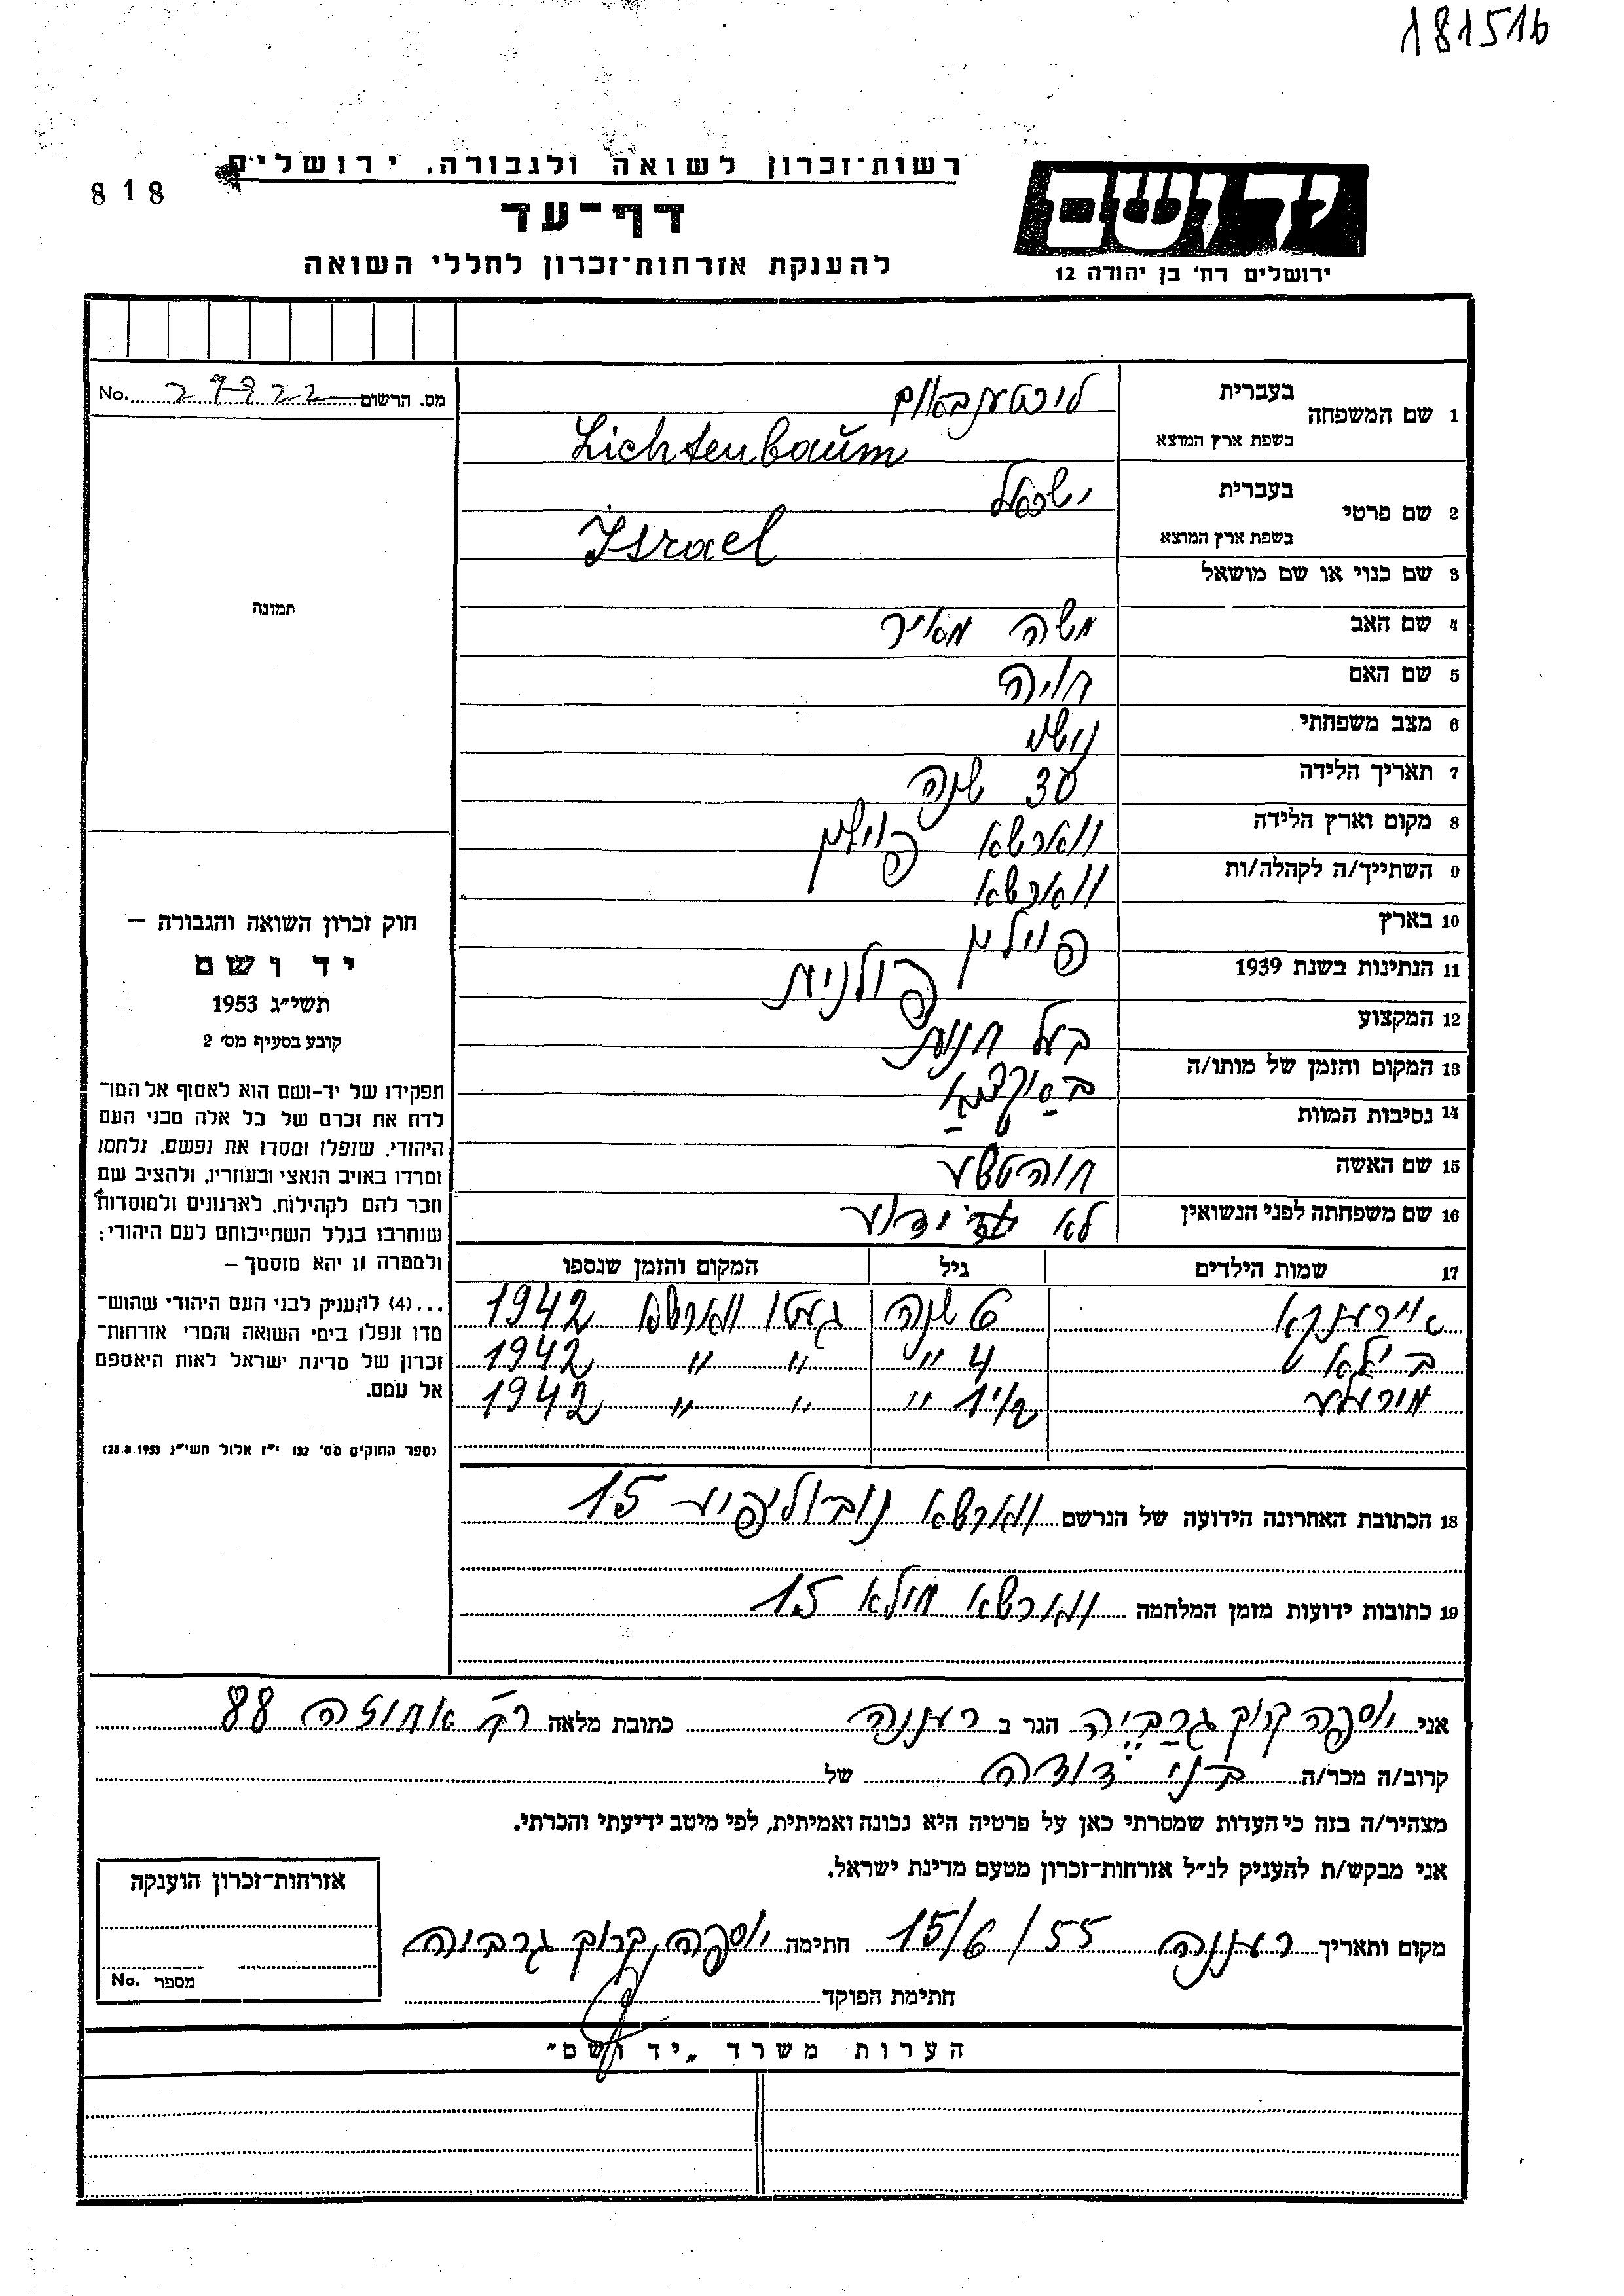 181516
818
רשות־זכרון לשואה ולגבורה, ירושלים
דף־עד
להענקת אזרחות־זכרון לחללי השואה
יד ושם
ירושלים רח׳ בן יהודה 12
מס. הרשום No. 27922
1 שם המשפחה בעברית ליכטענבאום
בשפת ארץ המוצא Lichtenbaŭm
2 שם פרטי בעברית ישראל
בשפת ארץ המוצא Israel
3 שם כנוי או שם מושאל
4 שם האב משה מאיר
5 שם האם חויה
6 מצב משפחתי נשוי
7 תאריך הלידה 30 שנה
8 מקום וארץ הלידה ווארשא פוילין
9 השתייך/ה לקהלה/ות ווארשא
10 בארץ פוילין
11 הנתינות בשנת 1939 פולנית
12 המקצוע בעל חנות
13 המקום והזמן של מותו/ה
14 נסיבות המוות
15 שם האשה
16 שם משפחתה לפני הנשואין לא ידוע
17 שמות הילדים גיל המקום והזמן שנספו
איירענקא 6 שנה געטו ווארשא 1942
4 " " " 1942
1 1/2 " " " 1942
18 הכתובת האחרונה הידועה של הנרשם ווארשא נובוליפיע 15
19 כתובות ידועות מזמן המלחמה ווארשא מילא 15
תמונה
חוק זכרון השואה והגבורה –
יד ושם
תשי״ג 1953
קובע בסעיף מס׳ 2
תפקידו של יד-ושם הוא לאסוף אל המו־
לדת את זכרם של כל אלה מבני העם
היהודי, שנפלו ומסרו את נפשם, נלחמו
ומרדו באויב הנאצי ובעוזריו, ולהציב שם
וזכר להם לקהילות, לארגונים ולמוסדות
שנחרבו בגלל השתייכותם לעם היהודי;
ולמטרה זו יהא מוסמך –
...(4) להעניק לבני העם היהודי שהוש־
מדו ונפלו בימי השואה והמרי אזרחות־
זכרון של מדינת ישראל לאות היאספם
אל עמם.
(ספר החוקים מס׳ 132 י״ז אלול תשי״ג 28.8.1953)
אני יוספה קרוק גרביה הגר ב רעננה כתובת מלאה רח׳ אחוזה 88
קרוב/ה מכר/ה בני דודה של
מצהיר/ה בזה כי העדות שמסרתי כאן על פרטיה היא נכונה ואמיתית, לפי מיטב ידיעתי והכרתי.
אני מבקש/ת להעניק לנ״ל אזרחות־זכרון מטעם מדינת ישראל.
מקום ותאריך רעננה 15/6/55 חתימה יוספה קרוק גרביה
חתימת הפוקד
אזרחות־זכרון הוענקה
מספר No.
הערות משרד „יד ושם״